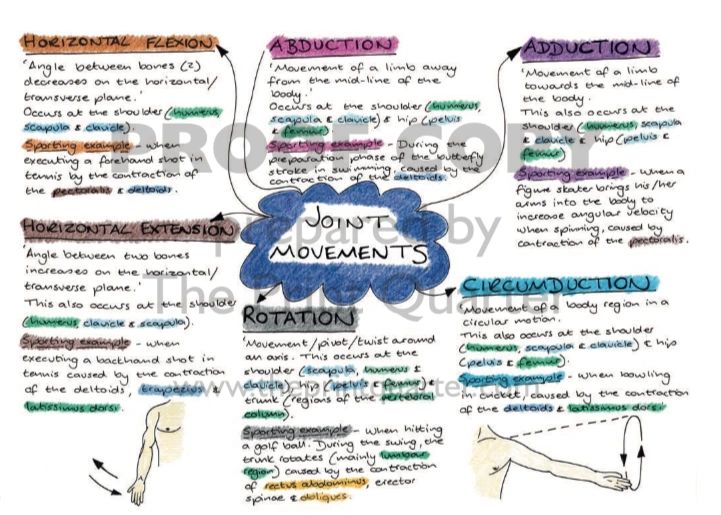 HORIZONTAL FLEXION
'Angle between bones (2)
decreases on the horizontal/
transverse plane.'
Occurs at the shoulder (humerus,
scapula & clavicle)
Sporting example - when
executing a forehand shot in
tennis by the contraction of
the pectoralis & deltoids.
ABDUCTION
'Movement of a limb away
from the mid-line of the
body.'
Occurs at the shoulder (humerus,
scapula & clavicle) & hip (pelvis
& femur)
Sporting example - During the
preparation phase of the butterfly
stroke in swimming, caused by the
contraction of the deltoids.
ADDUCTION
'Movement of a limb
towards the mid-line of
the body.
This also occurs at the
shoulder (humerus, scapula
& clavicle & hip (pelvis &
femur)
Sporting example - When a
figure skater brings his/her
arms into the body to
increase angular velocity
when spinning, caused by
contraction of the pectoralis.
JOINT
MOVEMENTS
HORIZONTAL EXTENSION
'Angle between two bones
increases on the horizontal/
transverse plane.'
This also occurs at the shoulder
(humerus, clavicle & scapula).
Sporting example - when
executing a backhand shot in
tennis caused by the contraction
of the deltoids, trapezius &
latissimus dorsi.
ROTATION
'Movement/pivot/twist around
an axis. This occurs at the
shoulder (scapula, humerus &
clavicle)
trunk/regions of the vertebral
column).
Sporting example - When hitting
a golf ball. During the swing, the
trunk rotates (mainly lumbar
region) caused by the contraction
of rectus abdominus, erector
spinae & obliques.
CIRCUMDUCTION
Movement of a body region in a
circular motion.
This also occurs at the shoulder
(humerus, scapula & clavicle) & hip
(pelvis & femur).
Sporting example - When bowling
in cricket, caused by the contraction
of the deltoids & latissimus dorsi
PROOF COPY
prepared by
The Print Quarter